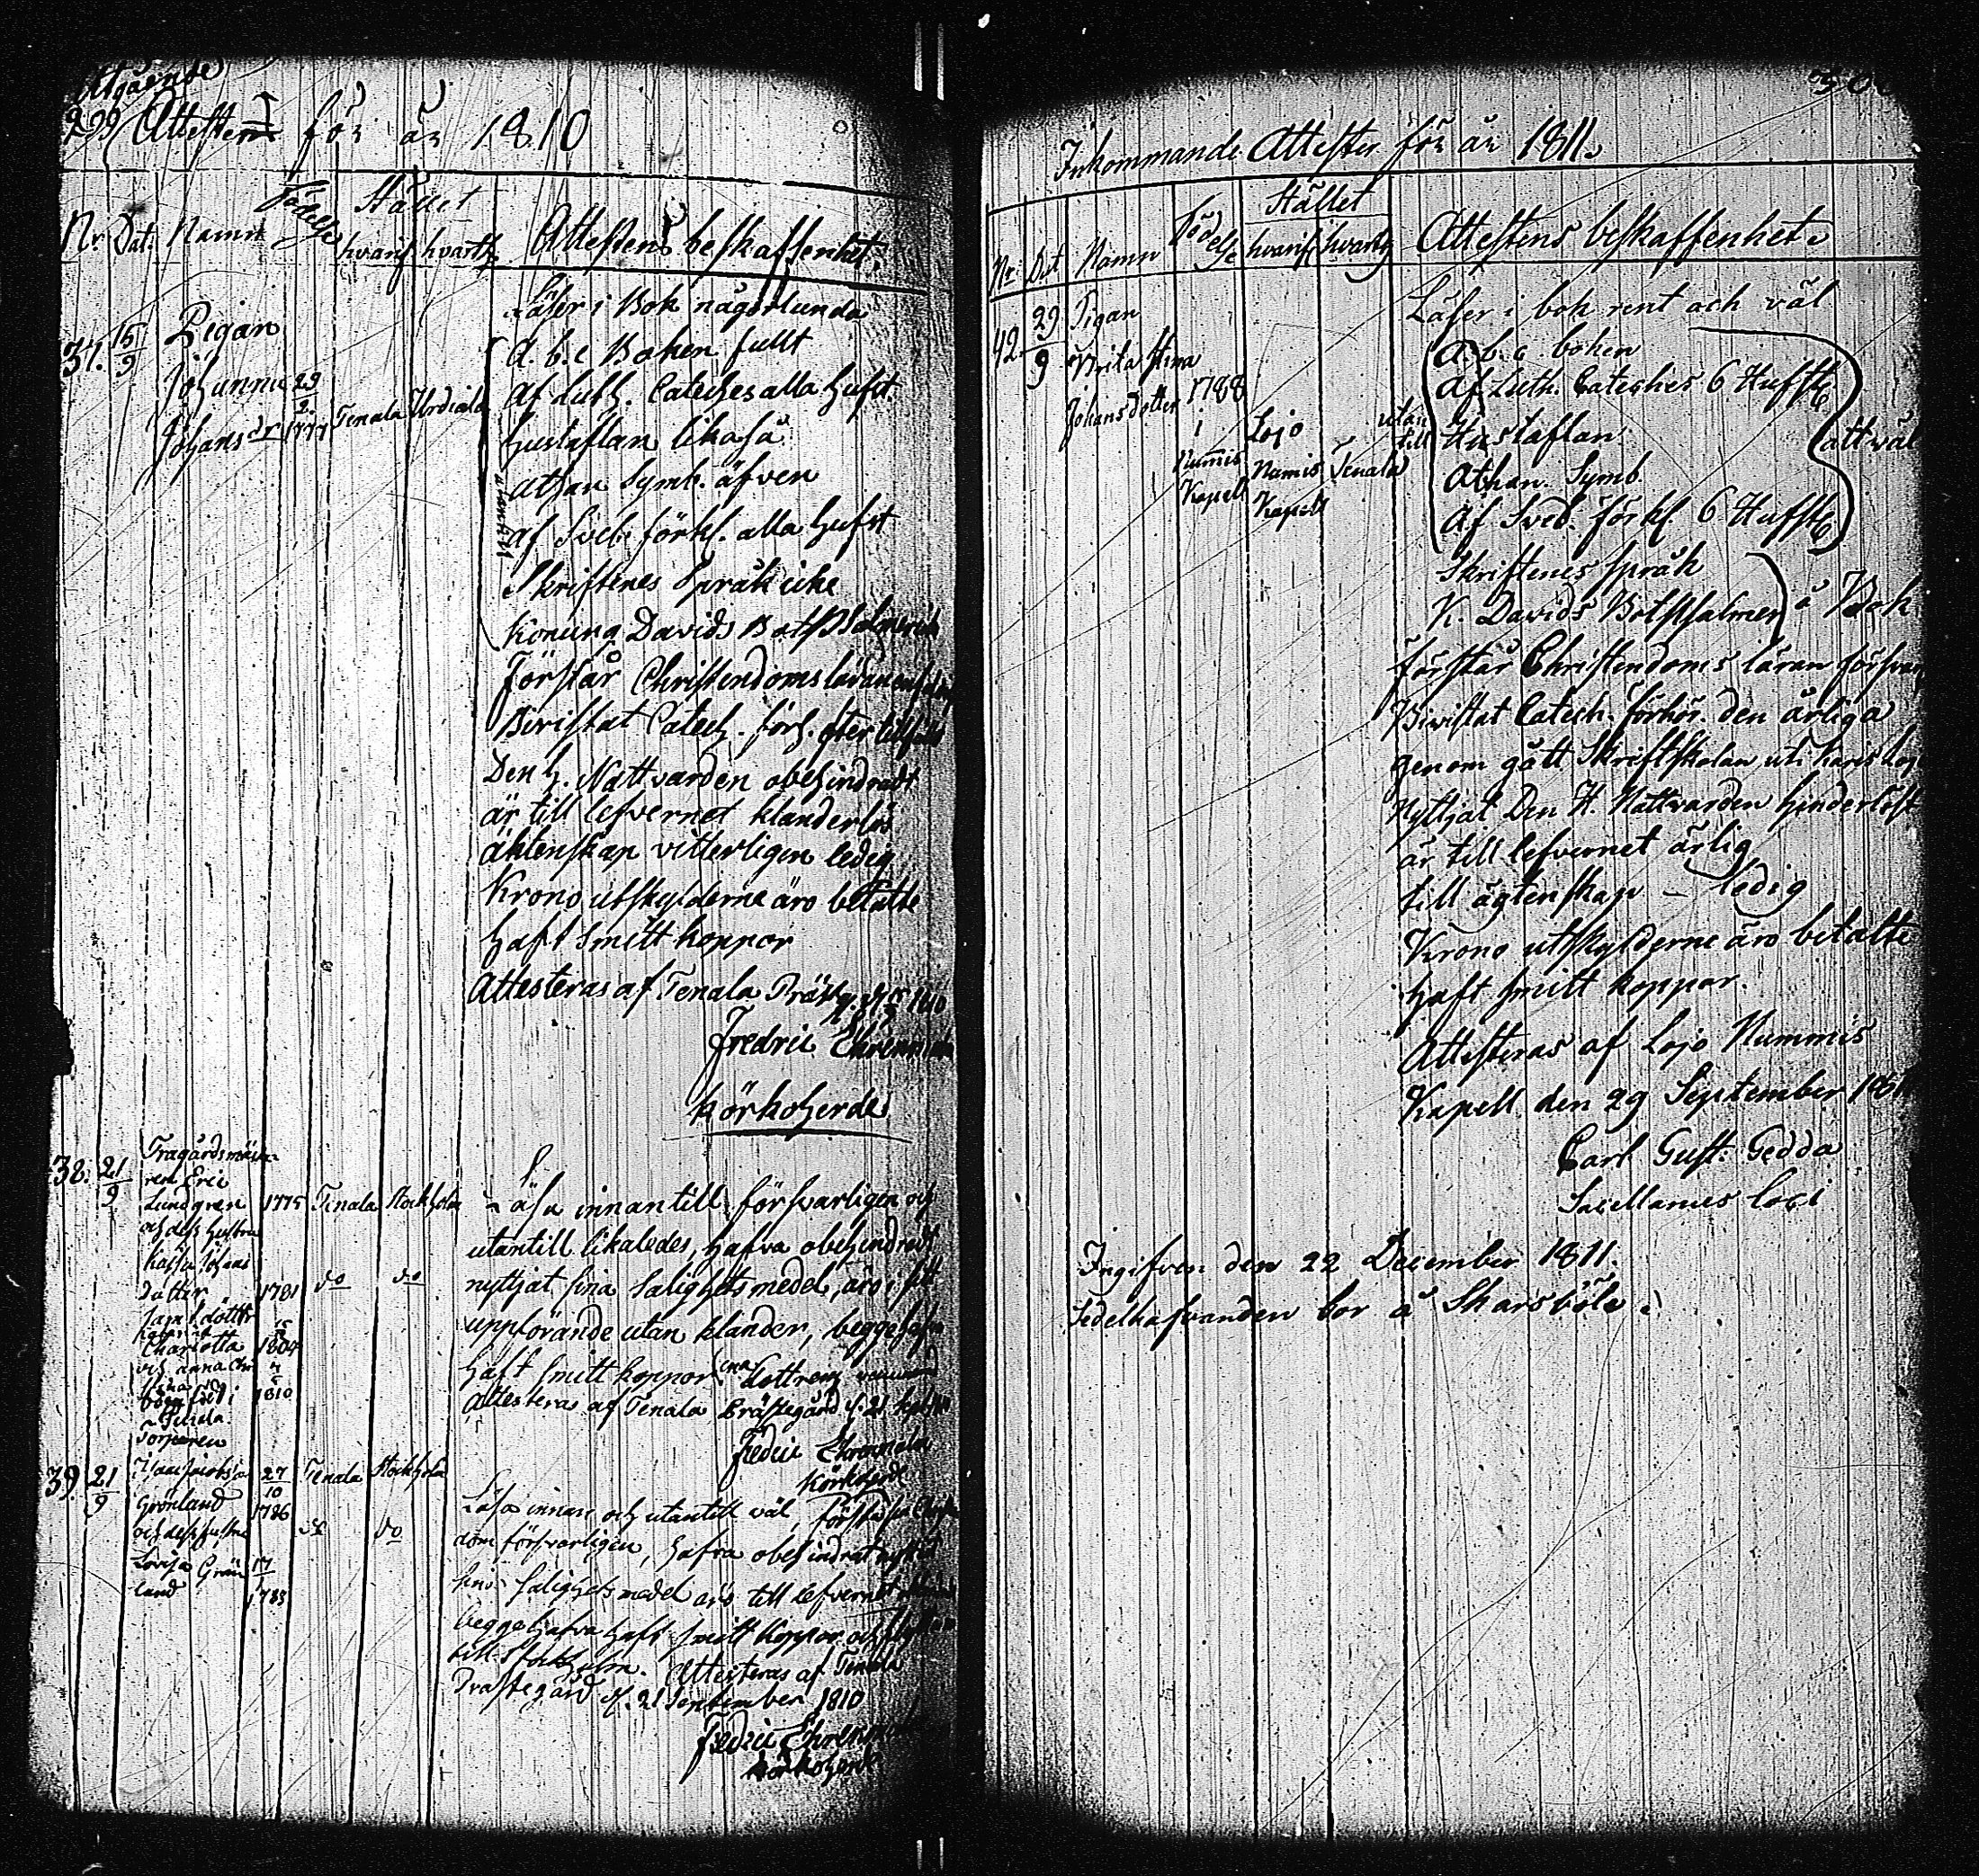 Utgående
299 Attester för år 1810
Nr. Dat. Namn Födelse Stället hvarifr hvarth Attestens beskaffenhet.
37. 15/9 Pigan
Johanna
Johansdr 29/2 1777 Tenala Urdiala
Läser i Bok någorlunda
A. b. c Boken fullt
af Luth. Cateches alla Hufst.
Hustaflan likaså
Athan Symb. äfven
af Sveb. förkl. alla Hufst
utantill
Skriftenes Språk icke
Konung Davids Bot Psalmer icke
Förstår Christendoms läran
Bivistat Catech. förh.
Den H. Nattvarden obehindradt
är till lefvernet klanderlös
äktenskap vitterligen ledig
Krono utskylderne äro betalte
Haft smitt koppor
Attesteras af Tenala Prästg. d. 15 1810
Fredric Ehrenmalm
Körkoherde
38. 21/9 Trägårdsmästa-
ren Eric
Lundgren 1775 Tenala Stockholm
och dess Hustru
Kajsa Johans
dotter 1781 do do
samt döttr
Charlotta 1804
och Anna Chri
stina
född i 1810
Tenala
Läsa innantill försvarligen och
utantill likaledes, hafva obehindradt
nyttjat sina Salighets medel, äro i sitt
uppförande utan klander, begge hafva
haft smitt koppor ena Dottren
Attesteras af Tenala Prästegård d. 21 Sept. 1810
Fredric Ehrenmalm
Körkoherde
39. 21/9 Torparen
Isaac Jacobsson
Grönland 27/10 1786 Tenala Stockholm
och dess Hustru do do
Lovisa Grön
land 17 1783
Läsa innan och utantill väl, Förstå sin Christen
dom försvarligen, hafva obehindrat nyttjat
sina Salighets medel äro till lefvernet
begge hafva haft smitt koppor och
till Stockholm. Attesteras af Tenala
Prästegård d. 21 September 1810
Fredric Ehrenmalm
Körkoherde
Inkommande Attester för år 1811.
Nr. Dat Namn Födelse Stället hvarifr hvarth Attestens beskaffenhet.
42 29/9 Pigan
Brita Stina
Johansdotter 1788
i
Nummis
Kapell
Lojo
Numis
Kapell
Tenala
Läser i bok rent och väl
utan
till
A. b. c boken
af Luth. Cateches 6 Hufst.
Hustaflan
Athan. Symb.
Af Sveb. förkl. 6 Hufst.
allt väl
Skriftenes språk
K. Davids Botpsalmer i Bok
förstår Christendoms läran försvar
Bivistat Catech. förhör. den årliga
genomgått Skriftskolan uti Karis Loj
Nyttjat Den H. Nattvarden hinderlöst
är till lefvernet ärlig
till ägtenskap - ledig
Krono utskylderne äro betalte
haft smitt koppor.
Attesteras af Lojo Nummis
Kapell den 29 September 1811
Carl Gust: Gedda
Sacellanus loci
Ingifven den 22 December 1811.
Sedelhafvanden bor å Skarsböle.